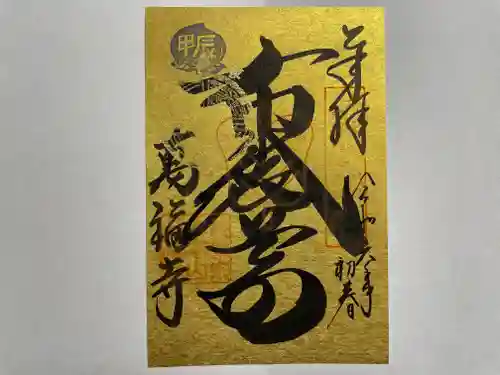 奉拝
令和六年
初春
布袋尊
甲辰
萬福寺